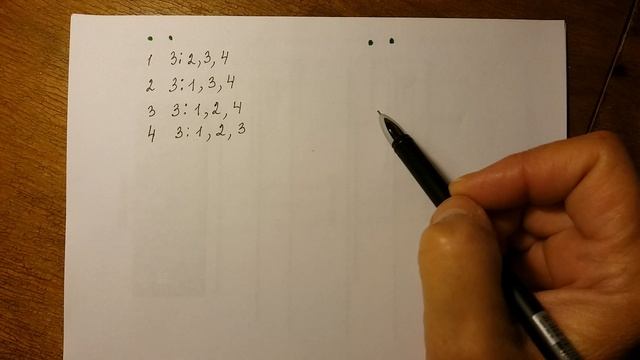 1 3: 2, 3, 4
2 3: 1, 3, 4
3 3: 1, 2, 4
4 3: 1, 2, 3